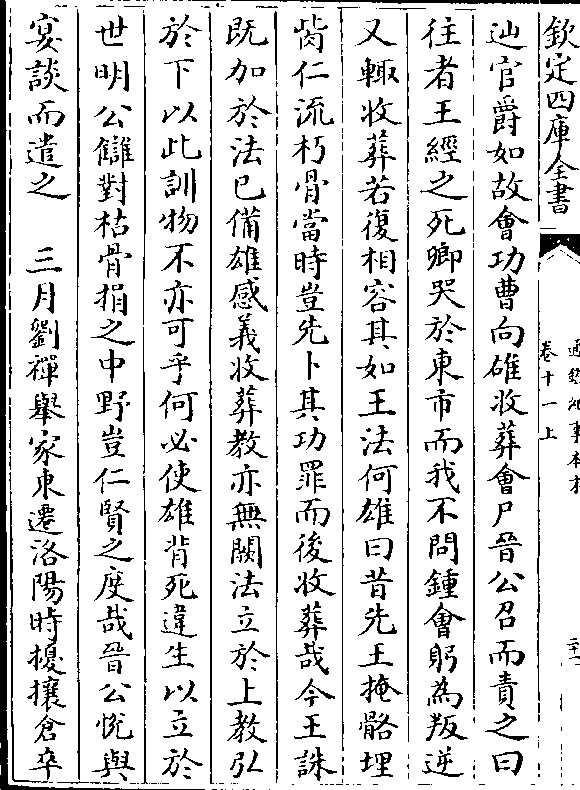 欽定四庫全書
通鑑紀事本末
卷十一上
辿官爵如故會功曹向雄收葬會尸晉公召而責之曰
往者王經之死卿哭於東市而我不問鍾會躬為叛逆
又輙收葬若復相容其如王法何雄曰昔先王掩骼埋
胔仁流朽骨當時豈先卜其功罪而後收葬哉今王誅
既加於法已備雄感義收葬教亦無闕法立於上教弘
於下以此訓物不亦可乎何必使雄背死違生以立於
世明公讎對枯骨捐之中野豈仁賢之度哉晉公悅與
宴談而遣之　三月劉禪舉家東遷洛陽時擾攘倉卒